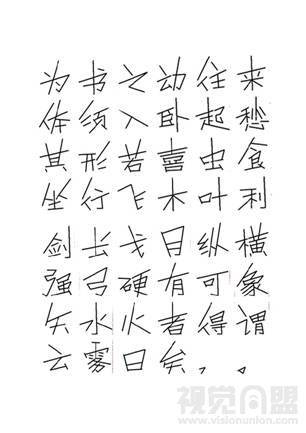 为书之动往来
体须入卧起愁
其形若喜虫食
坐行飞木叶利
剑长戈日纵横
强弓硬有可象
矢水火者得谓
云雾曰矣，。
视觉同盟
www.visionunion.com